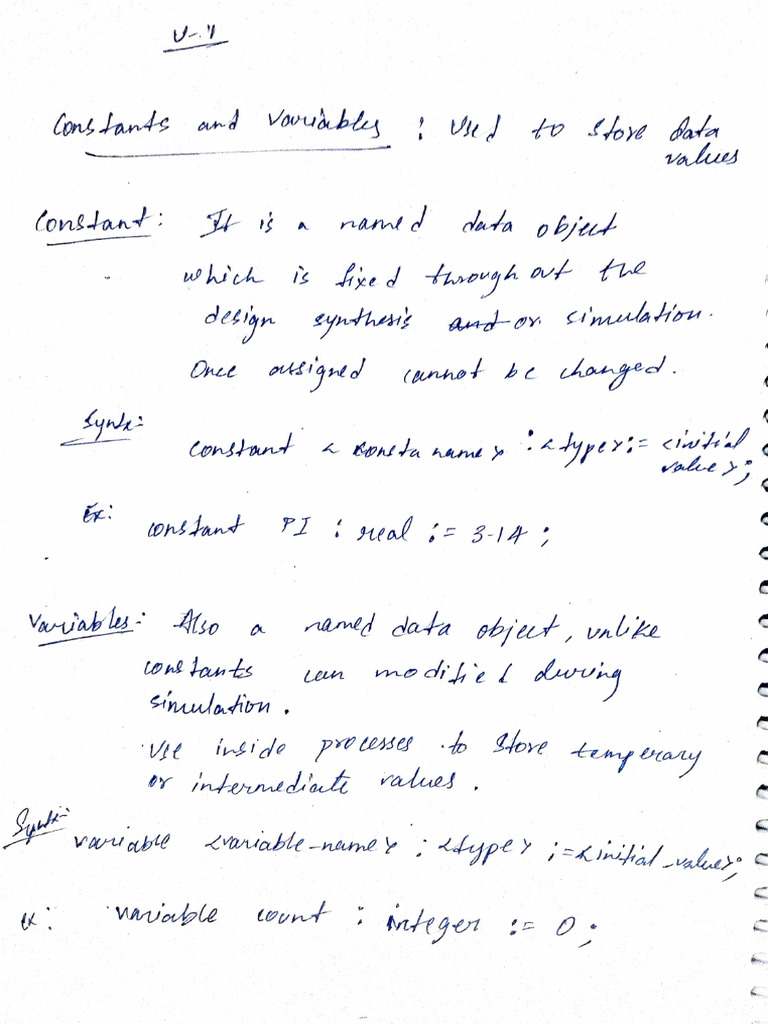 U-1
Constants and Variables : Used to store data
values
Constant: It is a named data object
which is fixed throughout the
design synthesis and or simulation.
Once assigned cannot be changed.
Syntx:
constant < consta name > : <type> := <initial
value>;
Ex: constant PI : real := 3.14 ;
Variables: Also a named data object, unlike
constants can modified during
simulation.
Use inside processes to store temperary
or intermediate values.
Syntx:
variable <variable-name> : <type> ;=<initial_value>;
ex: variable count : integer := 0 ;